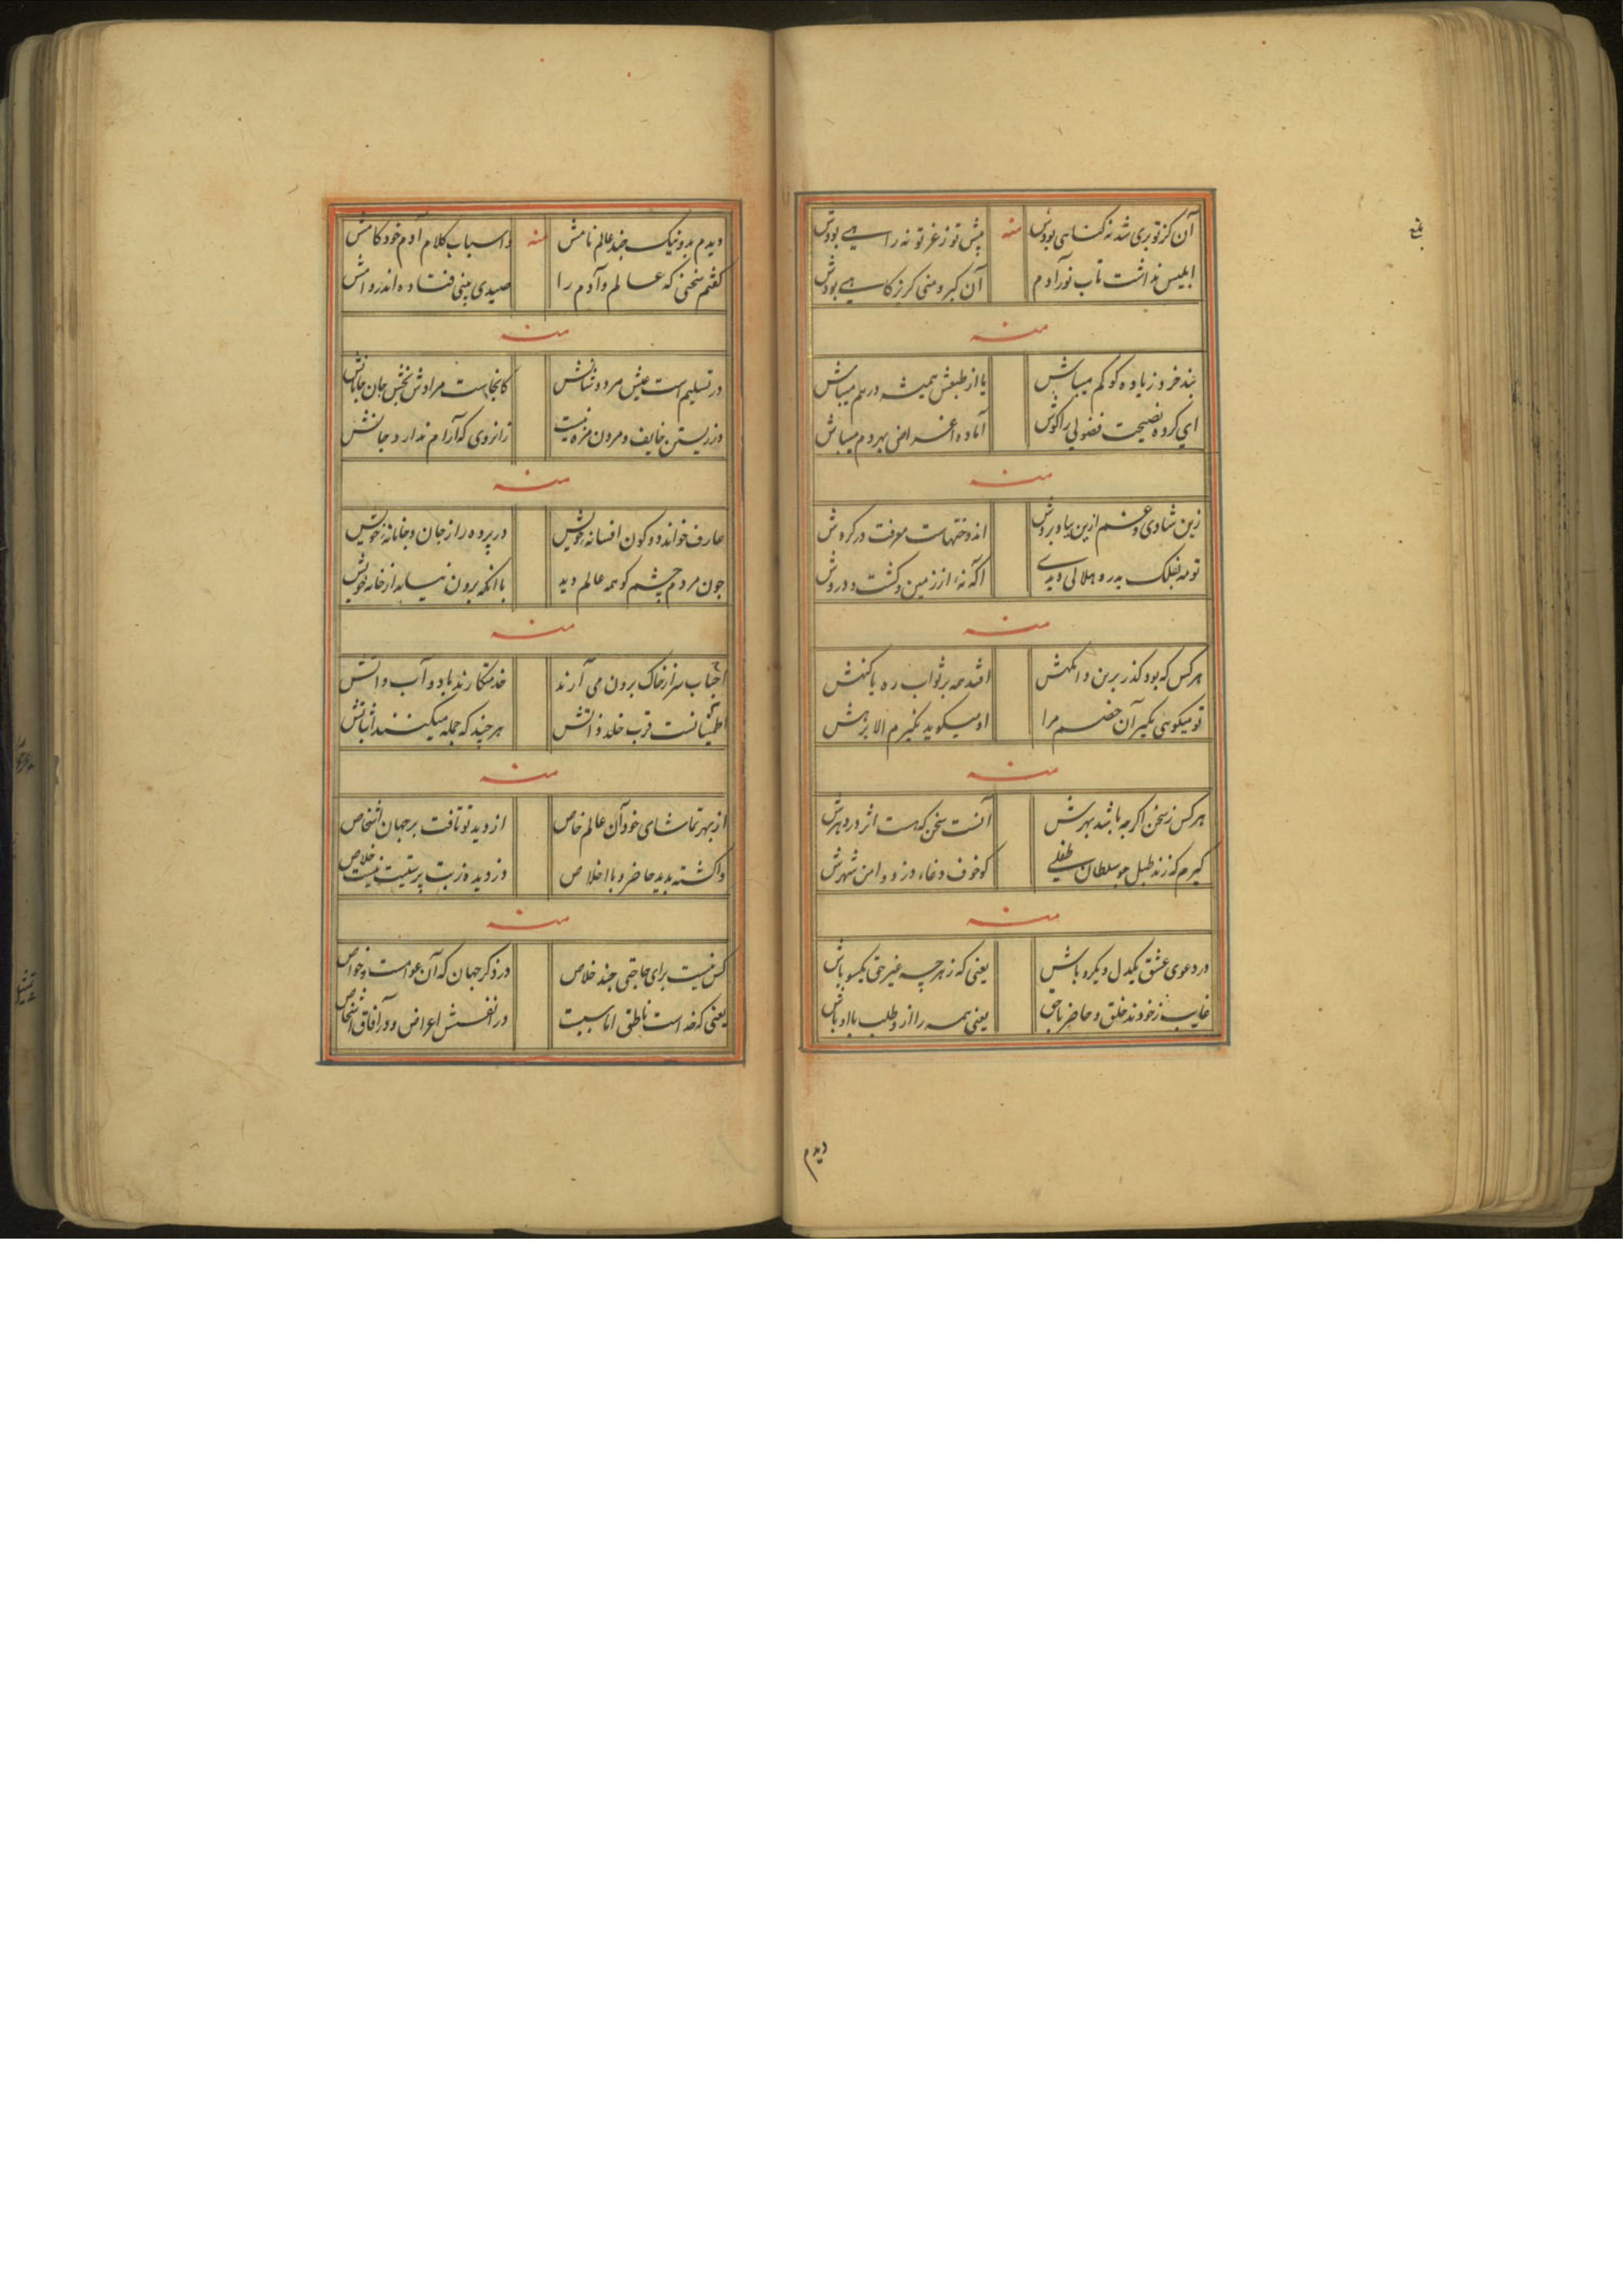 آن کز تو بری شد نه گناهی بودش منه پیش تو ز غر تو نه راهی بودش
ابلیس نداشت تاب نور آدم آن کبر و منی کریزکاهی بودش
منه
بند خرد زیاده کو کم میباش یا از طبعش همیشه درهم میباش
ای کرده نصیحت فضولی را گوش آماده اعراض بهر دم میباش
منه
زین شادی و غم ازین بیا و بروش اندوختهاست معرفت در کروش
تو مه بفلک بدر و هلالی دیدی آگه نهٔ از زمین و کشت و دروش
منه
هر کس که بود گذر برین دانکهش افتد همه بر ثواب ره یا گنهش
تو میگوئی بگیر آن خصم مرا او میگوید بگیرم الا بزهش
منه
هر کس ز سخن اگرچه باشد بهرش آنست سخن که هست اثر در دهرش
گیرم که زند طبل چو سلطان طفلی کو خوف و غاء دزد و امن شهرش
منه
در دعوی عشق یکدل و یکرو باش یعنی که ز هرچه غیر حق یکسو باش
غایب ز خودند خلق و حاضر با حق یعنی همه را ازو طلب با او باش
دیدم
دیدم بد و نیک چند عالم نامش منه و اسباب کلام آدم خودکامش
گفتم سخنی که عالم و آدم را صیدی بینی فتاده اندر دامش
منه
در تسلیم است عیش مرد و شانش کانجاست مرادش بخش جان جانانش
در زیستن خایف و مردن مزه نیست زانروی که آرام ندارد جانش
منه
عارف خواند دو کون افسانه خویش در پرده راز جان و جانانه خویش
چون مردم چشم کو همه عالم دید با آنکه برون نیاید از خانه خویش
منه
احباب سر از خاک برون می آرند خدمتکارند باد و آب و آتش
اطمینانست قرب خلد ذاتش هر چند که جمله میکنند اثباتش
منه
از بهر تماشای خود آن عالم خاص از دید تو تافت بر جهان اشخاص
واگشته بدید حاضر و با اخلاص دزدیده ز بت پرستیت نیست خلاص
منه
کس نیست برای حاجتی چند خلاص در ذکر جهان که آن عوامست و خواص
یعنی که خداست ناطق اناسیت در انفسش اعراض و در آفاق اشخاص